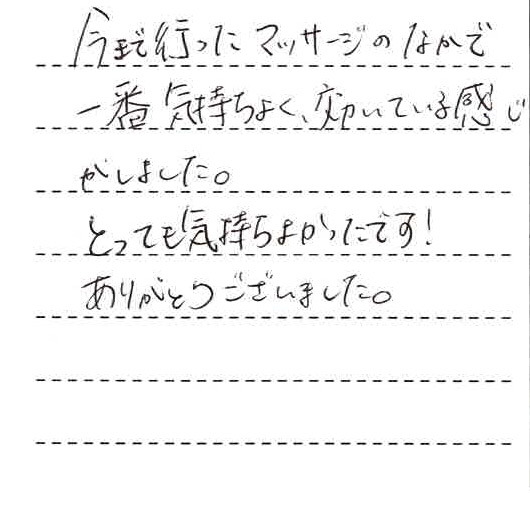 今まで行ったマッサージのなかで
一番気持ちよく、効いている感じ
がしました。
とっても気持ちよかったです!
ありがとうございました。